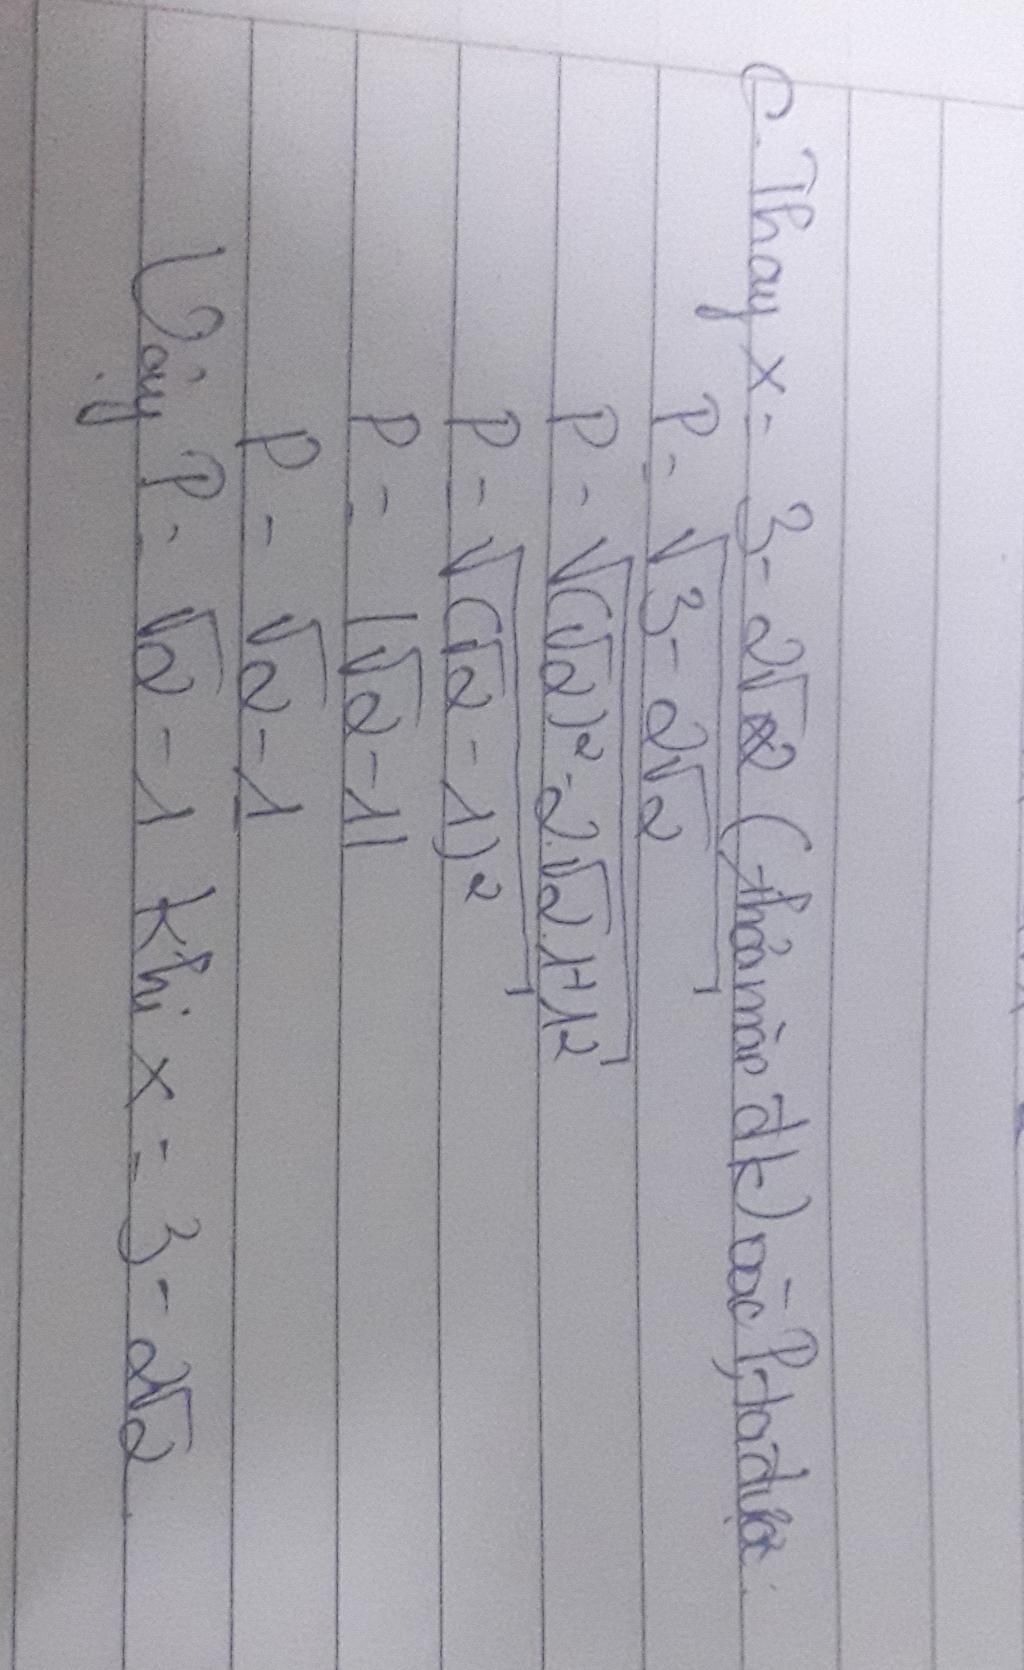 c. Thay x = 3 - 2√2 (thỏa mãn đk) vào P, ta được:
P = √(3 - 2√2)
P = √((√2)² - 2.√2.1+1²)
P = √((√2 - 1)²)
P = |√2 - 1|
P = √2 - 1
Vậy P = √2 - 1 khi x = 3 - 2√2.